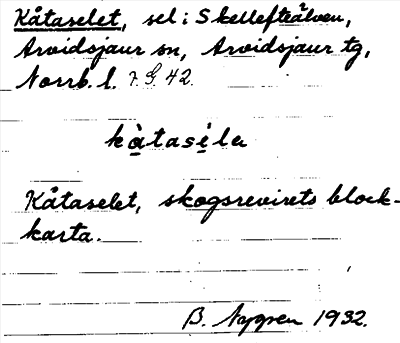 Kåtaselet, sel i Skellefteälven,
Arvidsjaur sn, Arvidsjaur tg,
Norrb. l. 7. G. 42.
kàtasélа
Kåtaselet, skogsrevirets block-
karta.
B. Nygren 1932.